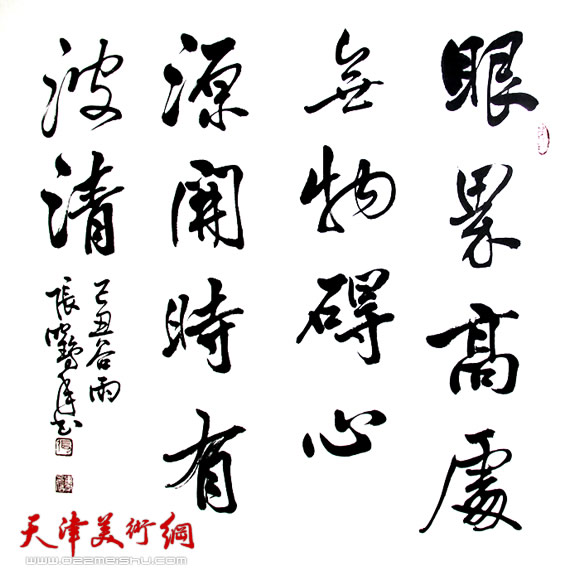 眼界高處
無物碍心
源開時有
波清
己丑谷雨
張
天津美術網
www.022meishu.com